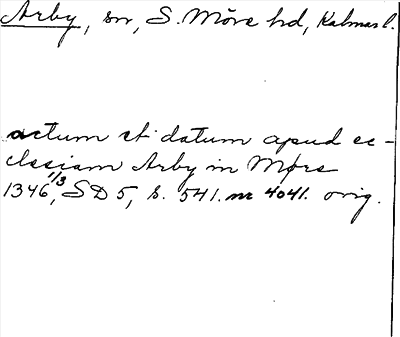 Arby, sn, S. Möre hd, Kalmar l.
actum et datum apud ec-
clesiam Arby in Møre
1346 1/3, SD 5, s. 541. nr 4041. orig.